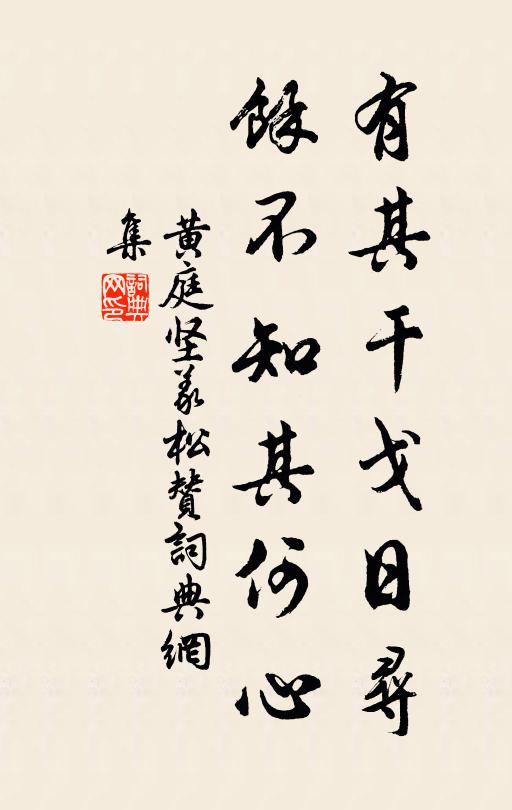 有其干戈日尋
餘不知其何心
黄庭坚義松贊詞典網
集
詞典
网印